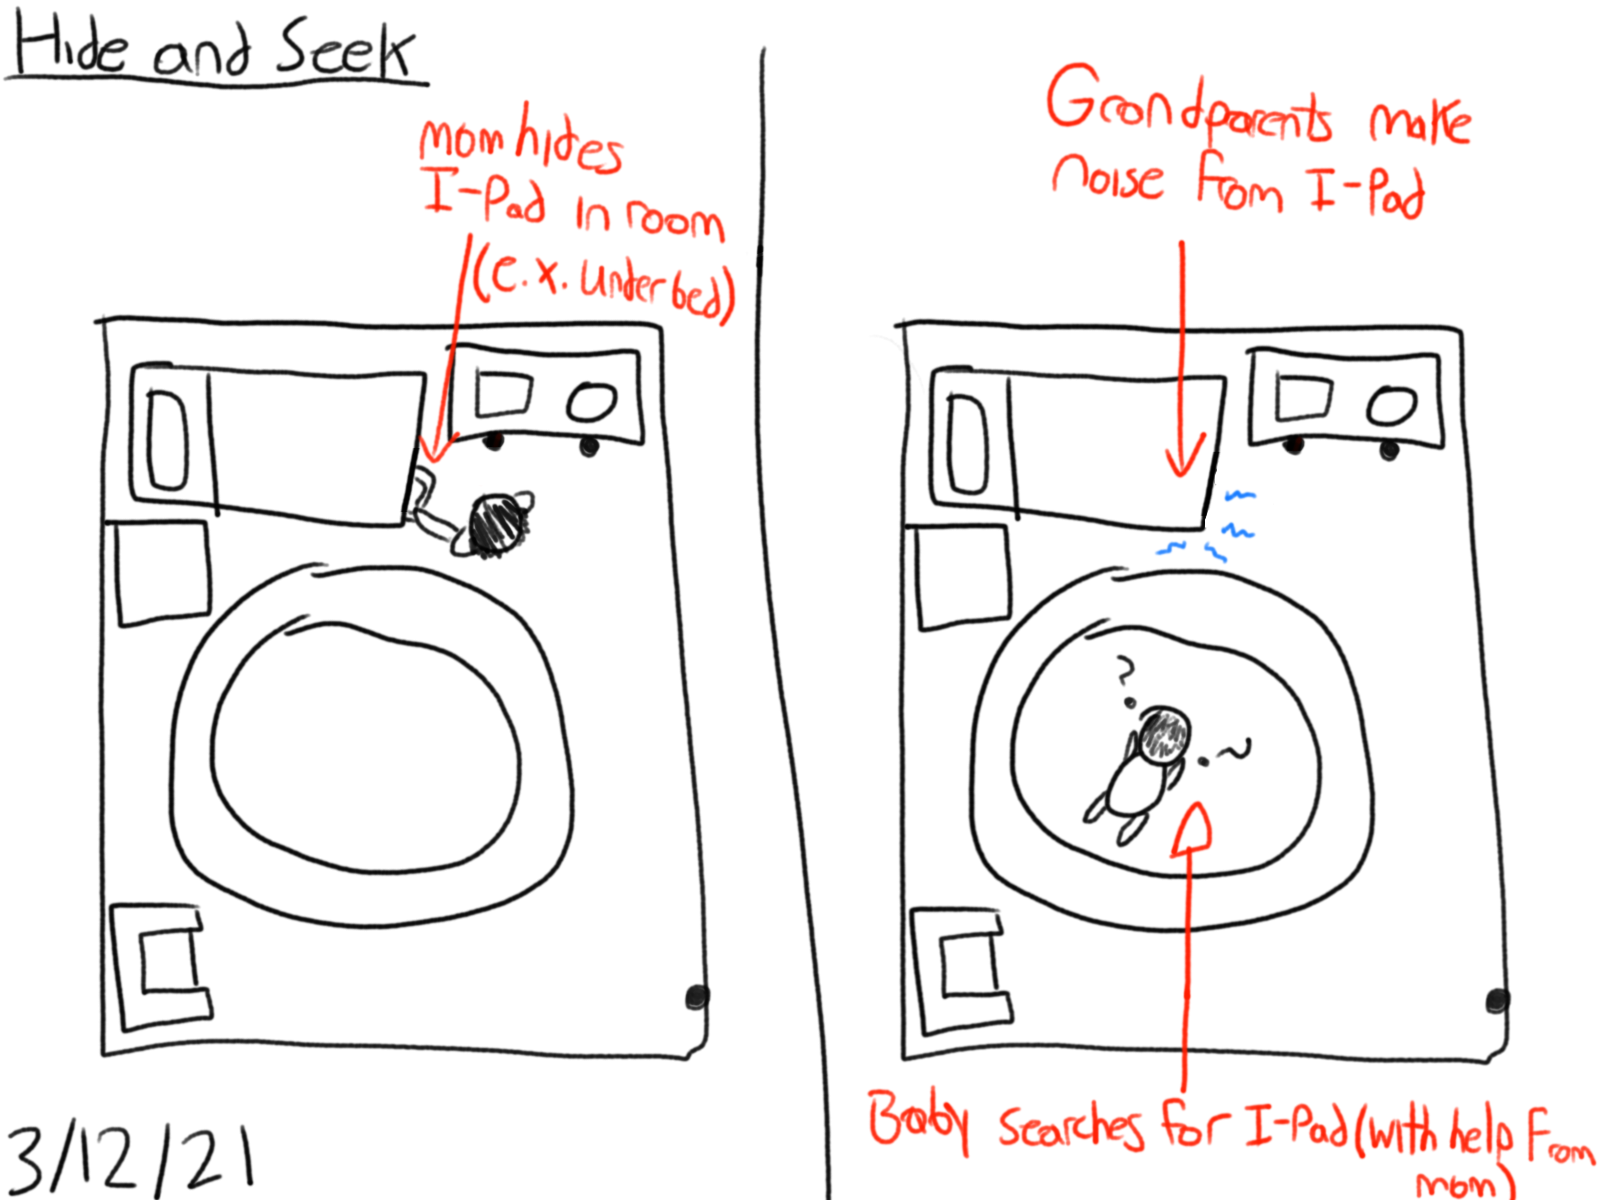 Hide and Seek
mom hides
I-Pad in room
(e.x. under bed)
Grandparents make
noise from I-Pad
?
?
Baby searches for I-Pad (with help from
mom)
3/12/21